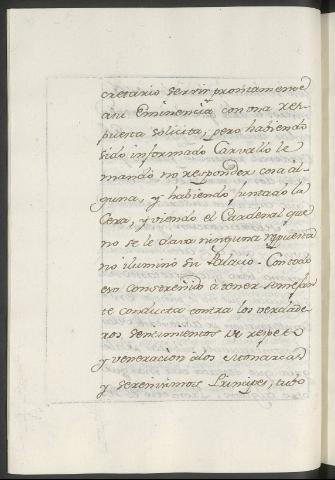 cretario servir prontamente
a su Eminencia con una res-
puesta solicita; pero habiendo
sido informado Carvallo le
mandó no responder cosa al-
guna, y habiendo juntado la
Cera, y viendo el Cardenal que
no se le dava ninguna respuesta
no iluminò su Palacio. Con todo
eso constreñido à tener semejan
te conducta contra los verdade-
ros sentimientos de respeto
y veneracion a los Monarcas
y Serenissimos Principes, tubo